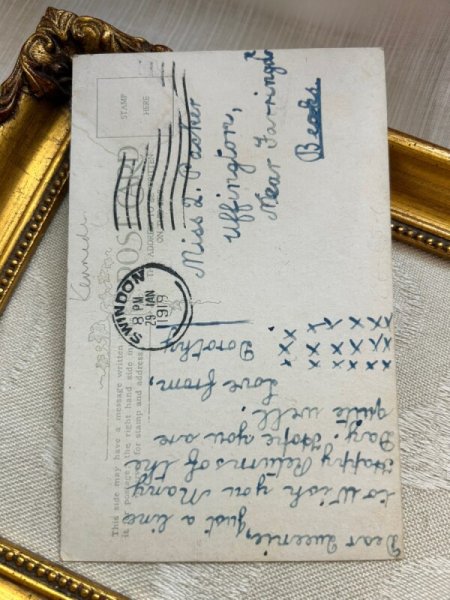 Dear Queenie, just a line
to Wish you Many
Happy Returns of the
Day. Hope you are
quite well.
Love from.
Dorothy
x x x x x x
x x x x x
x x x x x
Miss Q. Packer
Uffington,
Near Farringdon
Berks.
STAMP
HERE
SWINDON
8 PM
29 JAN
1919
POST CARD
THE ADDRESS
ON
This side may have a message written
postage, the right hand side
for stamp and address